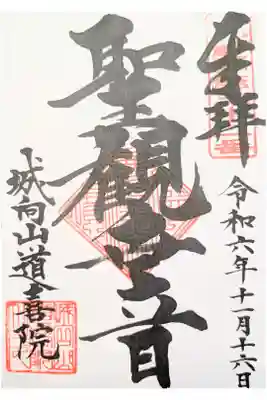 奉拝
令和六年十一月十六日
聖観世音
城向山道喜院